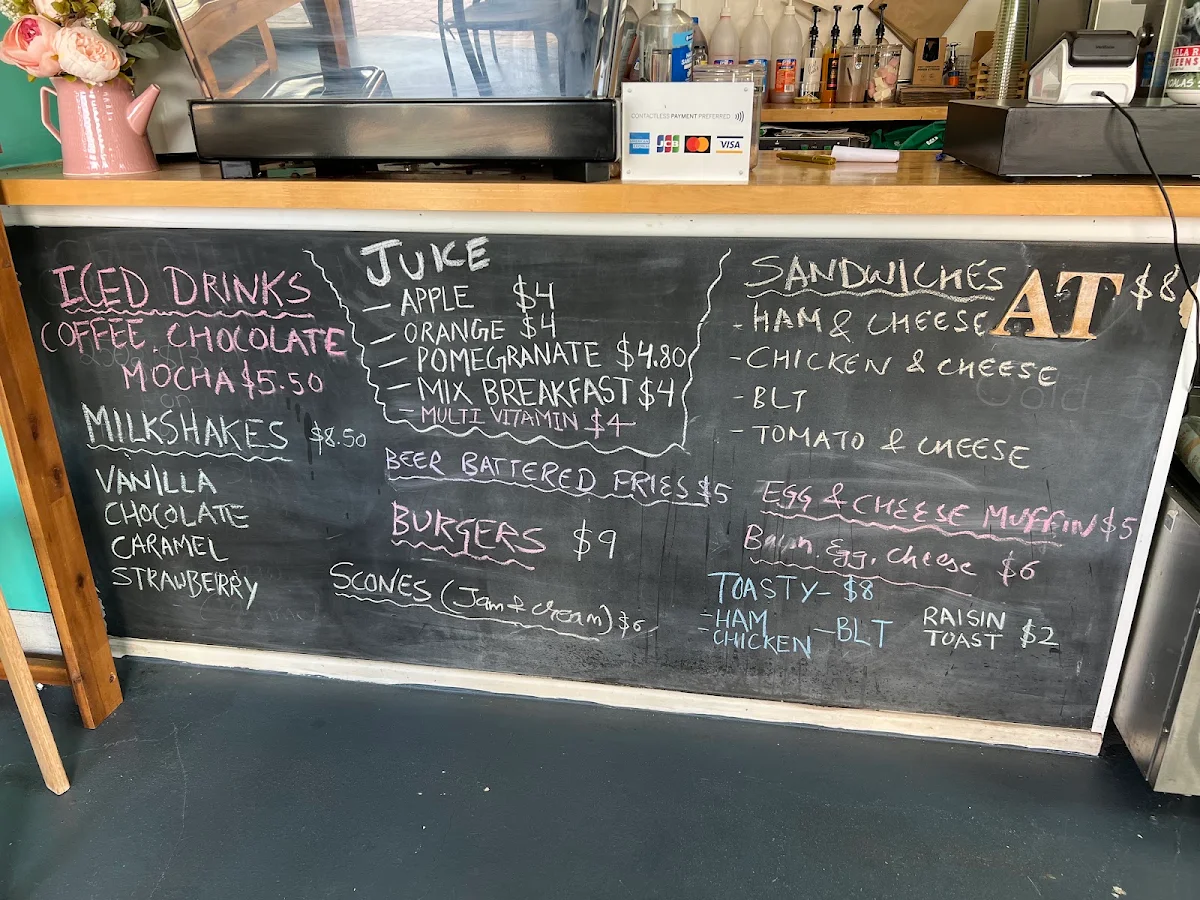 CONTACTLESS PAYMENT PREFERRED
AMERICAN EXPRESS JCB mastercard VISA
ICED DRINKS
COFFEE CHOCOLATE
MOCHA $5.50
MILKSHAKES $8.50
VANILLA
CHOCOLATE
CARAMEL
STRAWBERRY
JUICE
- APPLE $4
- ORANGE $4
- POMEGRANATE $4.80
- MIX BREAKFAST $4
- MULTI VITAMIN $4
BEER BATTERED FRIES $5
BURGERS $9
SCONES (Jam & cream) $6
SANDWICHES AT $8
- HAM & CHEESE
- CHICKEN & CHEESE
- BLT
- TOMATO & CHEESE
EGG & CHEESE MUFFIN $5
Bacon, Egg, Cheese $6
TOASTY - $8
- HAM
- CHICKEN
- BLT
RAISIN
TOAST $2